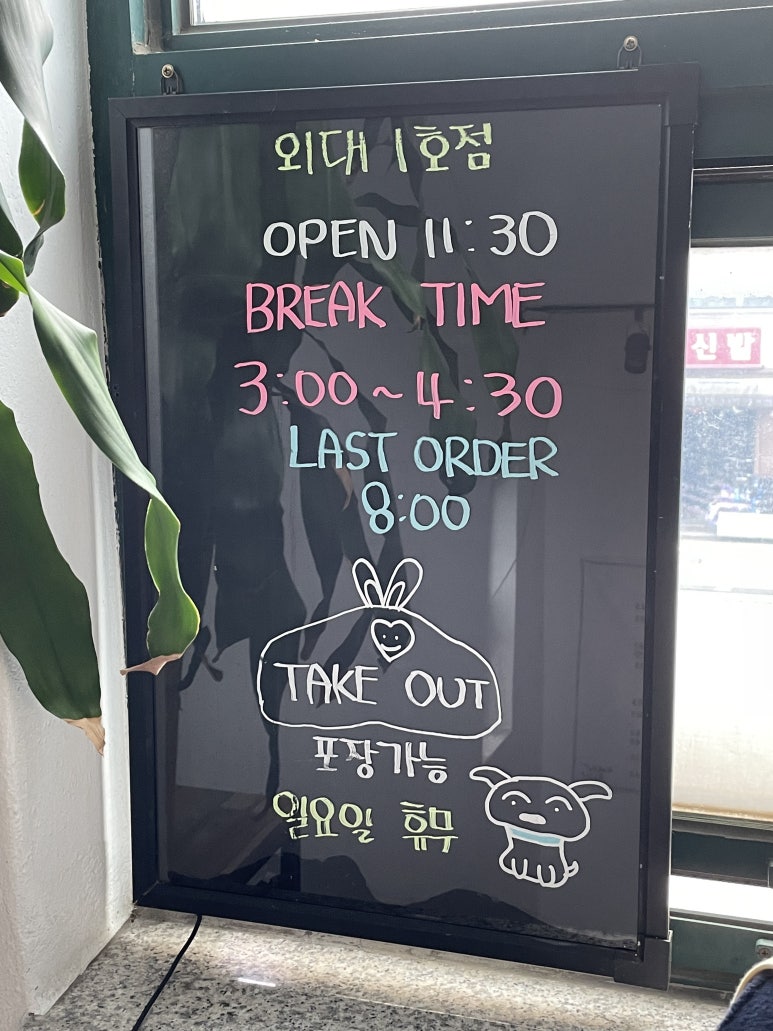 외대 1호점
OPEN 11:30
BREAK TIME
3:00~4:30
LAST ORDER
8:00
TAKE OUT
포장가능
일요일 휴무
신발